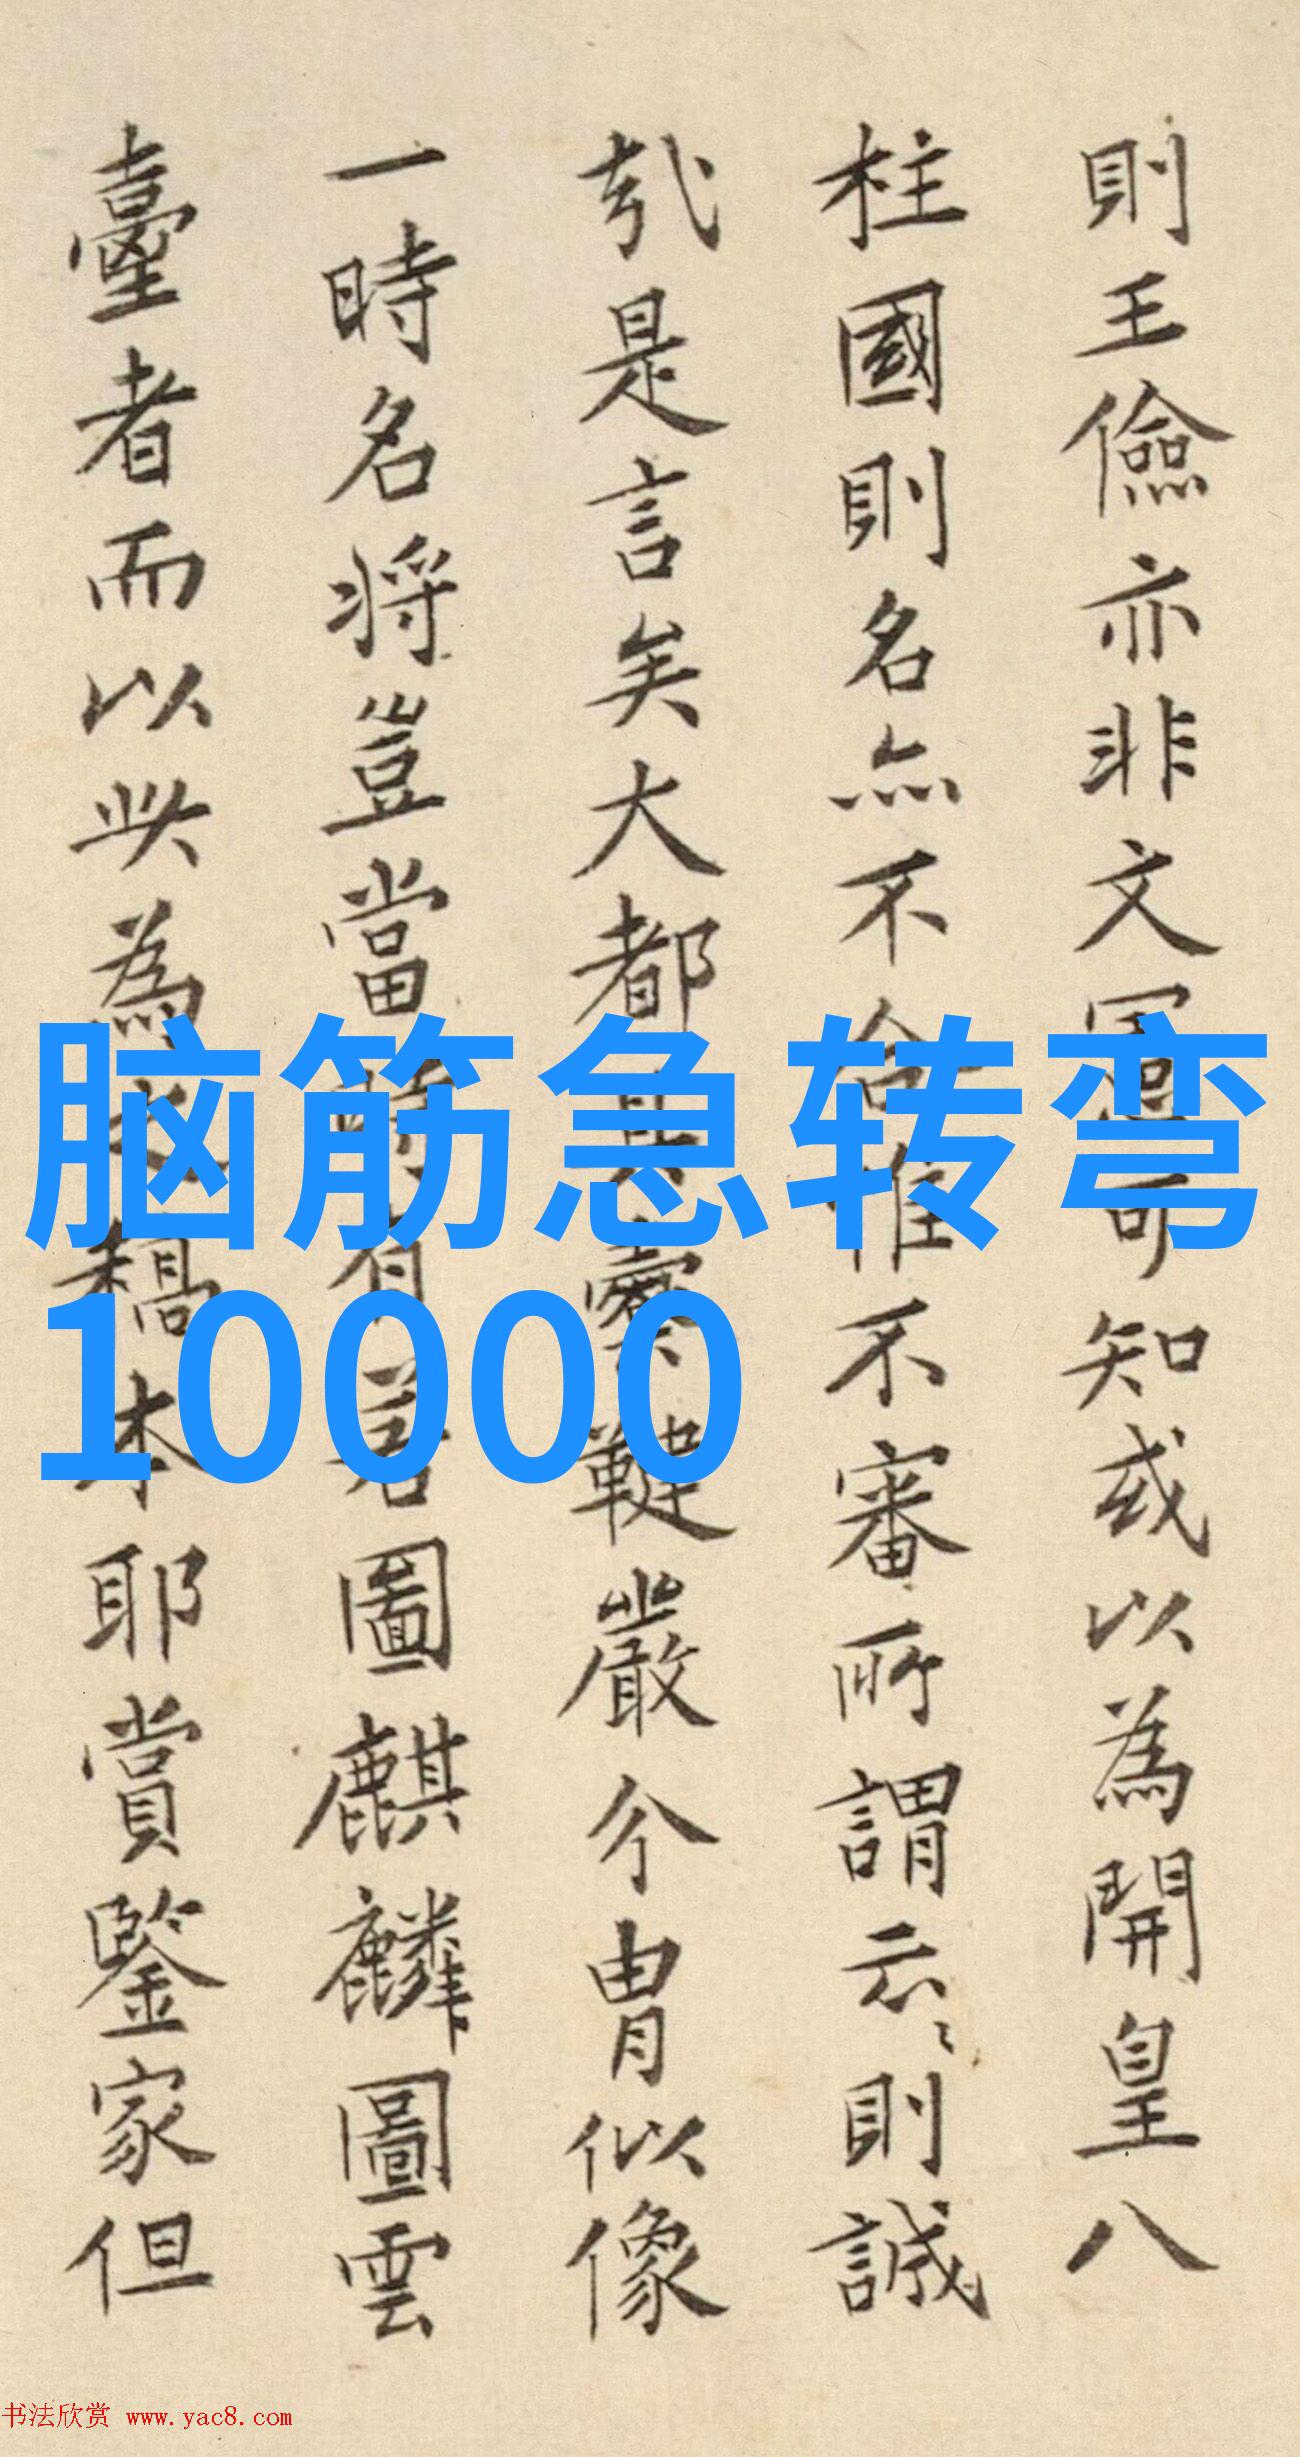 則王儉亦非文憲可知或以為開皇八
柱國則名亦不合惟不審所謂云〻則誠
哉是言矣大都其鞬嚴介胄似像
一時名將豈當時有若圖麒麟圖雲
臺者而以此為之稿本耶賞鑒家但
脑筋急转弯
10000
书法欣赏 www.yac8.com